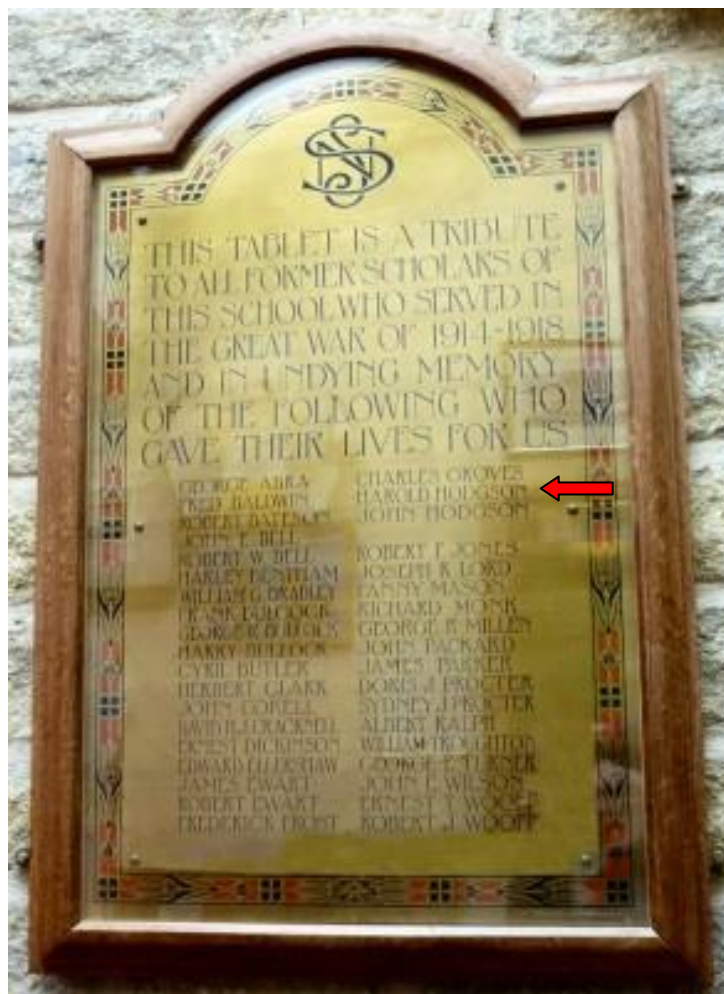 THIS TABLET IS A TRIBUTE
TO ALL FORMER SCHOLARS OF
THIS SCHOOL WHO SERVED IN
THE GREAT WAR OF 1914-1918
AND IN UNDYING MEMORY
OF THE FOLLOWING WHO
GAVE THEIR LIVES FOR US
GEORGE ABRA
FRED BALDWIN
ROBERT BATESON
JOHN E. BELL
ROBERT W. BELL
HARLEY BENTHAM
WILLIAM G. BRADLEY
FRANK BULCOCK
GEORGE R. BULCOCK
HARRY BULLOCK
CYRIL BUTLER
HERBERT CLARK
JOHN CORELL
DAVID H. J. CRACKNELL
ERNEST DICKINSON
EDWARD ELLERSHAW
JAMES EWART
ROBERT EWART
FREDERICK FROST
CHARLES GROVES
HAROLD HODGSON
JOHN HODGSON
ROBERT F. JONES
JOSEPH R. LORD
FANNY MASON
RICHARD MONK
GEORGE MILLEN
JOHN PACKARD
JAMES PARKER
DORIS J. PROCTER
SYDNEY J. PROCTER
ALBERT RALPH
WILLIAM TROUGHTON
GEORGE TURNER
JOHN WILSON
ERNEST
ROBERT J. WOOFF